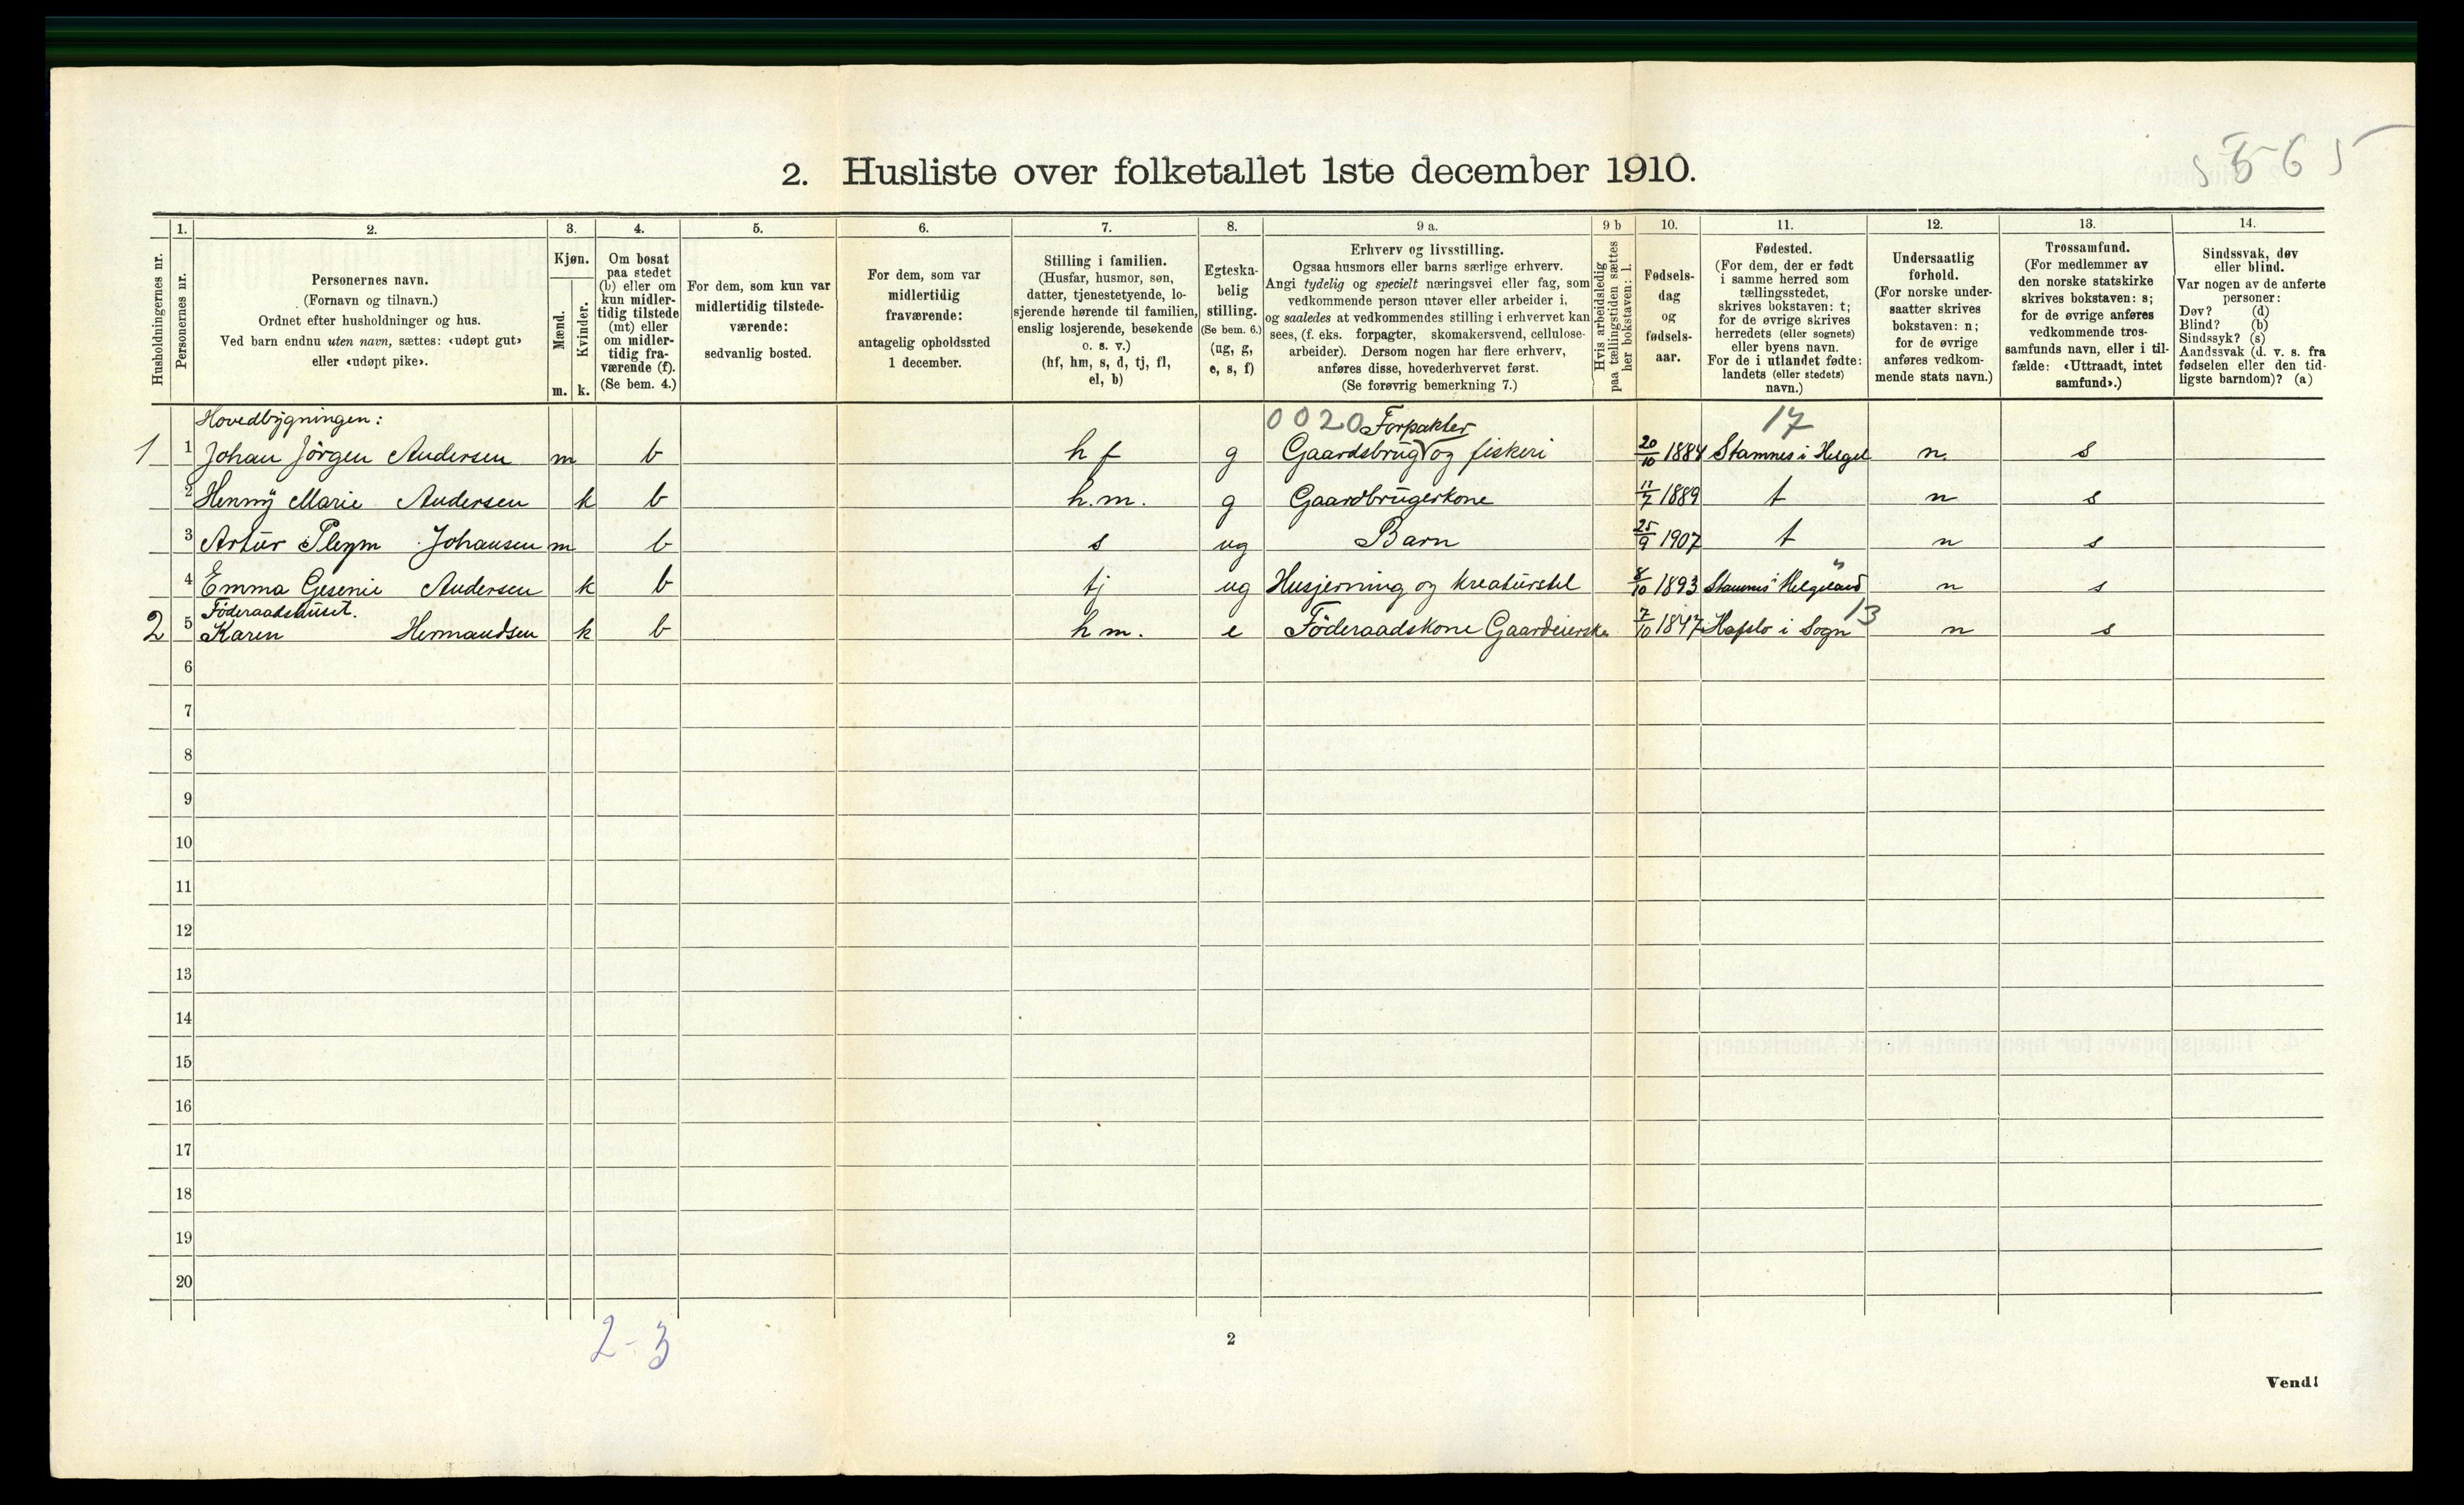 5565
2. Husliste over folketallet 1ste december 1910.
Husholdningernes nr.
1. Personernes nr.
2. Personernes navn. (Fornavn og tilnavn.) Ordnet efter husholdninger og hus. Ved barn endnu uten navn, sættes: «udøpt gut» eller «udøpt pike».
3. Kjøn. Mænd. m. Kvinder. k.
4. Om bosat paa stedet (b) eller om kun midlertidig tilstede (mt) eller om midlertidig fraværende (f). (Se bem. 4.)
5. For dem, som kun var midlertidig tilstedeværende: sedvanlig bosted.
6. For dem, som var midlertidig fraværende: antagelig opholdssted 1 december.
7. Stilling i familien. (Husfar, husmor, søn, datter, tjenestetyende, losjerende hørende til familien, enslig losjerende, besøkende o. s. v.) (hf, hm, s, d, tj, fl, el, b)
8. Egteskabelig stilling. (Se bem. 6.) (ug, g, e, s, f)
9 a. Erhverv og livsstilling. Ogsaa husmors eller barns særlige erhverv. Angi tydelig og specielt næringsvei eller fag, som vedkommende person utøver eller arbeider i, og saaledes at vedkommendes stilling i erhvervet kan sees, (f. eks. forpagter, skomakersvend, cellulosearbeider). Dersom nogen har flere erhverv, anføres disse, hovederhvervet først. (Se forøvrig bemerkning 7.)
9 b Hvis arbeidsledig paa tællingstiden sættes her bokstaven: l.
10. Fødselsdag og fødselsaar.
11. Fødested. (For dem, der er født i samme herred som tællingsstedet, skrives bokstaven: t; for de øvrige skrives herredets (eller sognets) eller byens navn. For de i utlandet fødte: landets (eller stedets) navn.)
12. Undersaatlig forhold. (For norske undersaatter skrives bokstaven: n; for de øvrige anføres vedkommende stats navn.)
13. Trossamfund. (For medlemmer av den norske statskirke skrives bokstaven: s; for de øvrige anføres vedkommende trossamfunds navn, eller i tilfælde: «Uttraadt, intet samfund».)
14. Sindssvak, døv eller blind. Var nogen av de anførte personer: Døv? (d) Blind? (b) Sindssyk? (s) Aandssvak (d. v. s. fra fødselen eller den tidligste barndom)? (a)
Hovedbygningen: 0020 Forpakter 17
1 1 Johan Jörgen Andersen m b h f g Gaardsbrug og fiskeri 20/10 1884 Stamnes i Helgel n. s
2 Henny Marie Andersen k b h.m. g Gaardbrugerkone 11/7 1889 t n s
3 Artur Pleym Johansen m b s ug Barn 25/9 1907 t n s
4 Emma Gesenie Andersen k b tj ug Husjerning og kreaturstel 8/10 1893 Stamnes i Helgeland n s
Föderaadshuset. 13
2 5 Karen Hermandsen k b hm. e Föderaadskone Gaardeierske 7/10 1847 Hafslo i Sogn n s
6
7
8
9
10
11
12
13
14
15
16
17
18
19
20
2-3
2
Vend!